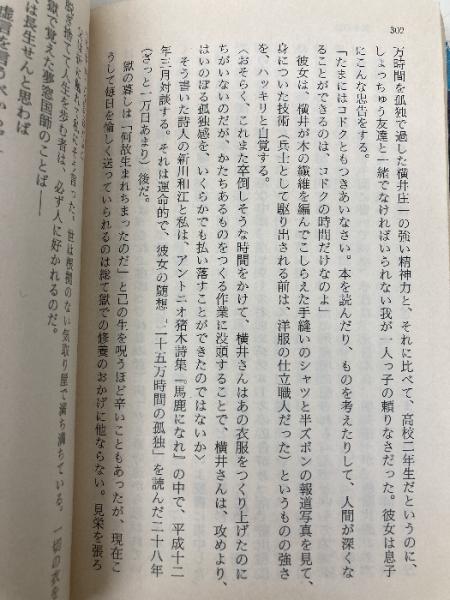 302
万時間を孤独で過した横井庄一の強い精神力と、それに比べて、高校二年生だというのに、
しょっちゅう友達と一緒でなければいられない我が一人っ子の頼りなさだった。彼女は息子
にこんな忠告をする。
「たまにはコドクともつきあいなさい。本を読んだり、ものを考えたりして、人間が深くな
ることができるのは、コドクの時間だけなのよ」
彼女は、横井が木の繊維を編んでこしらえた手縫いのシャツと半ズボンの報道写真を見て、
身についた技術（兵士として駆り出される前は、洋服の仕立職人だった）というものの強さ
を、ハッキリと自覚する。
〈おそらく、これまた卒倒しそうな時間をかけて、横井さんはあの衣服をつくり上げたのに
ちがいないのだが、かたちあるものをつくる作業に没頭することで、横井さんは、攻めより、
はいのぼる孤独感を、いくらかでも払い落すことができたのではないか〉
そう書いた詩人の新川和江と私は、アントニオ猪木詩集『馬鹿になれ』の中で、平成十二
年三月対談する。それは運命的で、彼女の随想「二十五万時間の孤独」を読んだ二十八年
（ざっと一万日あまり）後だ。
獄の暮しは「何故生まれちまったのだ」と己の生を呪うほど辛いこともあったが、現在こ
うして毎日を愉しく送っていられるのは総て獄での修養のおかげに他ならない。見栄を張ろ
と言った。世は模倣のない気取り屋で満ち満ちている。一切の衣を
脱ぎ捨てて人生を歩む者は、必ず人に好かれるのだ。
獄で覚えた夢窓国師のことば――
は長生せんと思わば
虚言を言うべからず